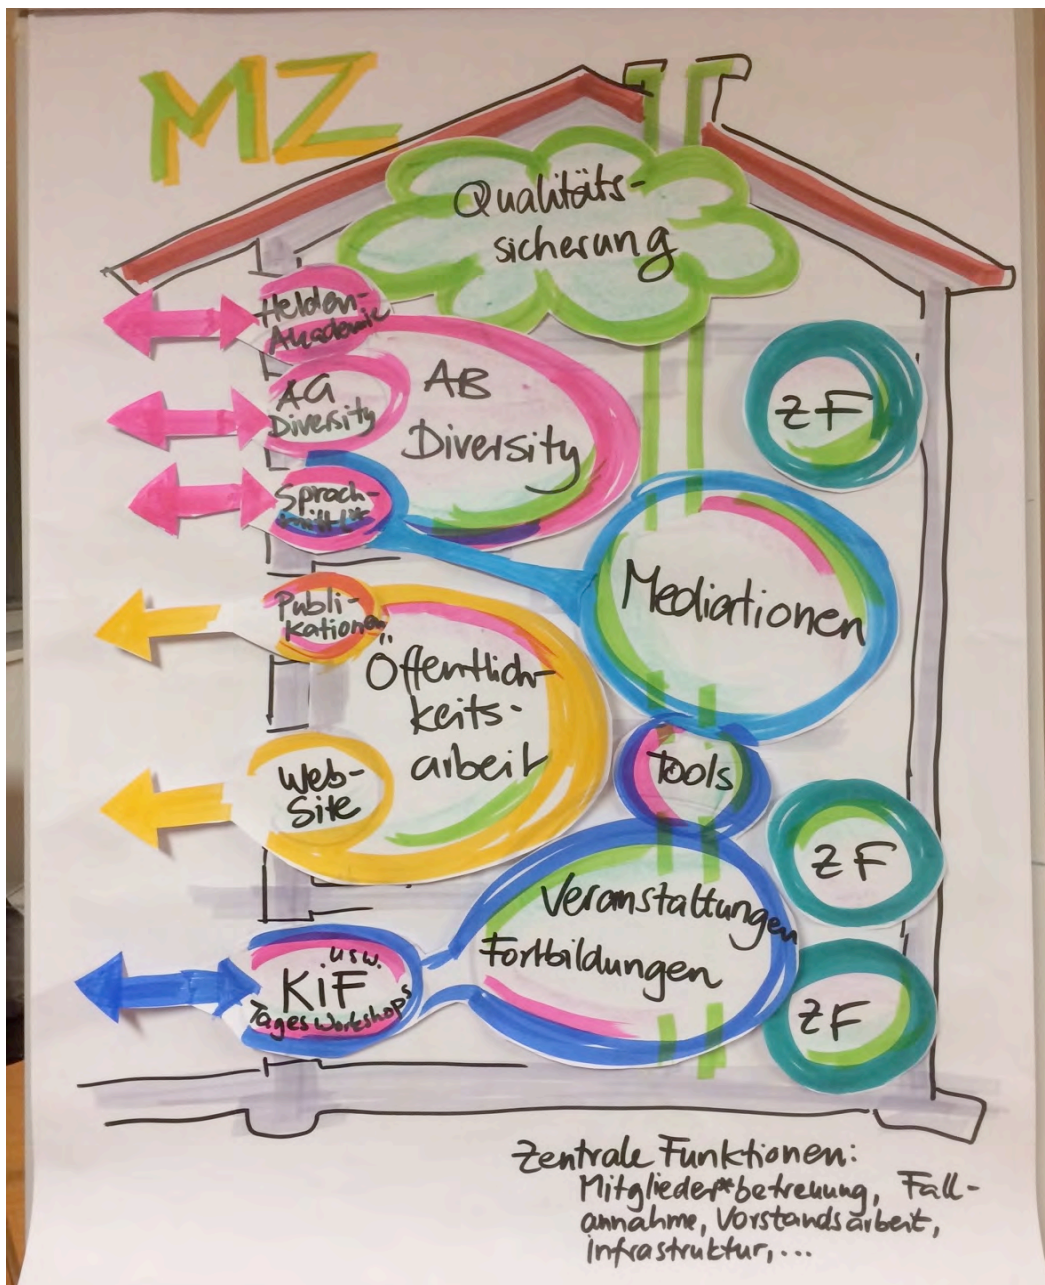 MZ
Qualitäts-
sicherung
Helden-
Akademie
AG
Diversity
AB
Diversity
ZF
Sprach-
Mediationen
Publi-
kationen
Öffentlich-
keits-
arbeit
Tools
Web-
Site
ZF
Veranstaltungen
Fortbildungen
usw.
KiF
Tagesworkshops
ZF
Zentrale Funktionen:
Mitglieder*betreuung, Fall-
annahme, Vorstandsarbeit,
Infrastruktur,...